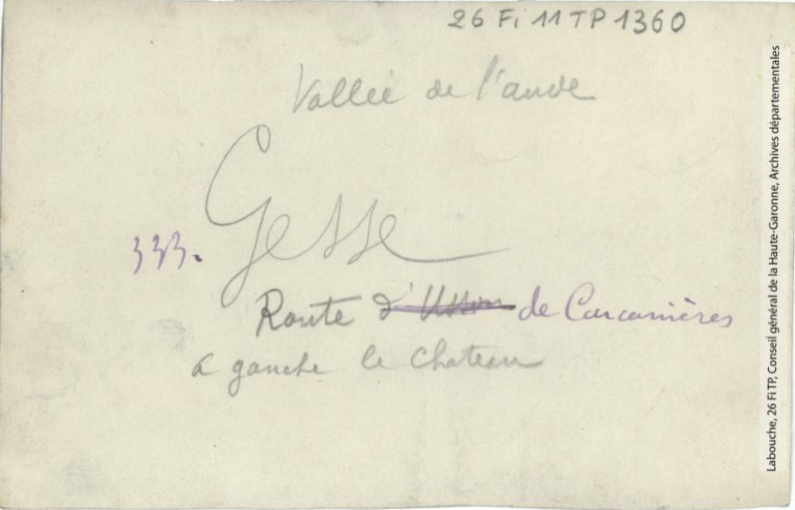 26 Fi 11 TP 1360
Vallée de l'aude
Gesse
333.
Route d'Usson de Carcanières
a gauche le Chateau
Labouche, 26 FI TP, Conseil général de la Haute-Garonne, Archives départementales